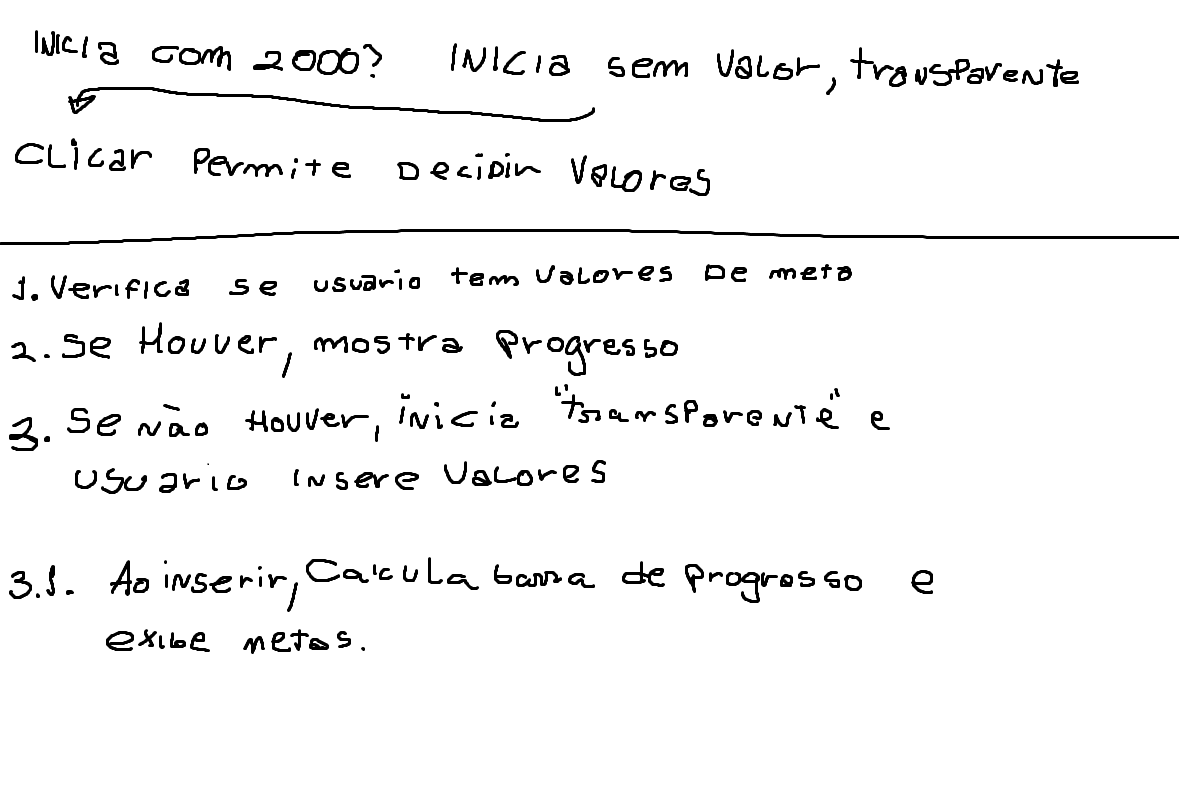 INICIA com 2000? INICIA sem Valor, transparente
CLICAR Permite DeciDir Valores
1. Verifica se usuário tem Valores De meta
2. Se Houver, mostra Progresso
3. Se não Houver, inicia "transparente" e
usuario insere Valores
3.1. Ao inserir, Calcula barra de progresso e
exibe metas.